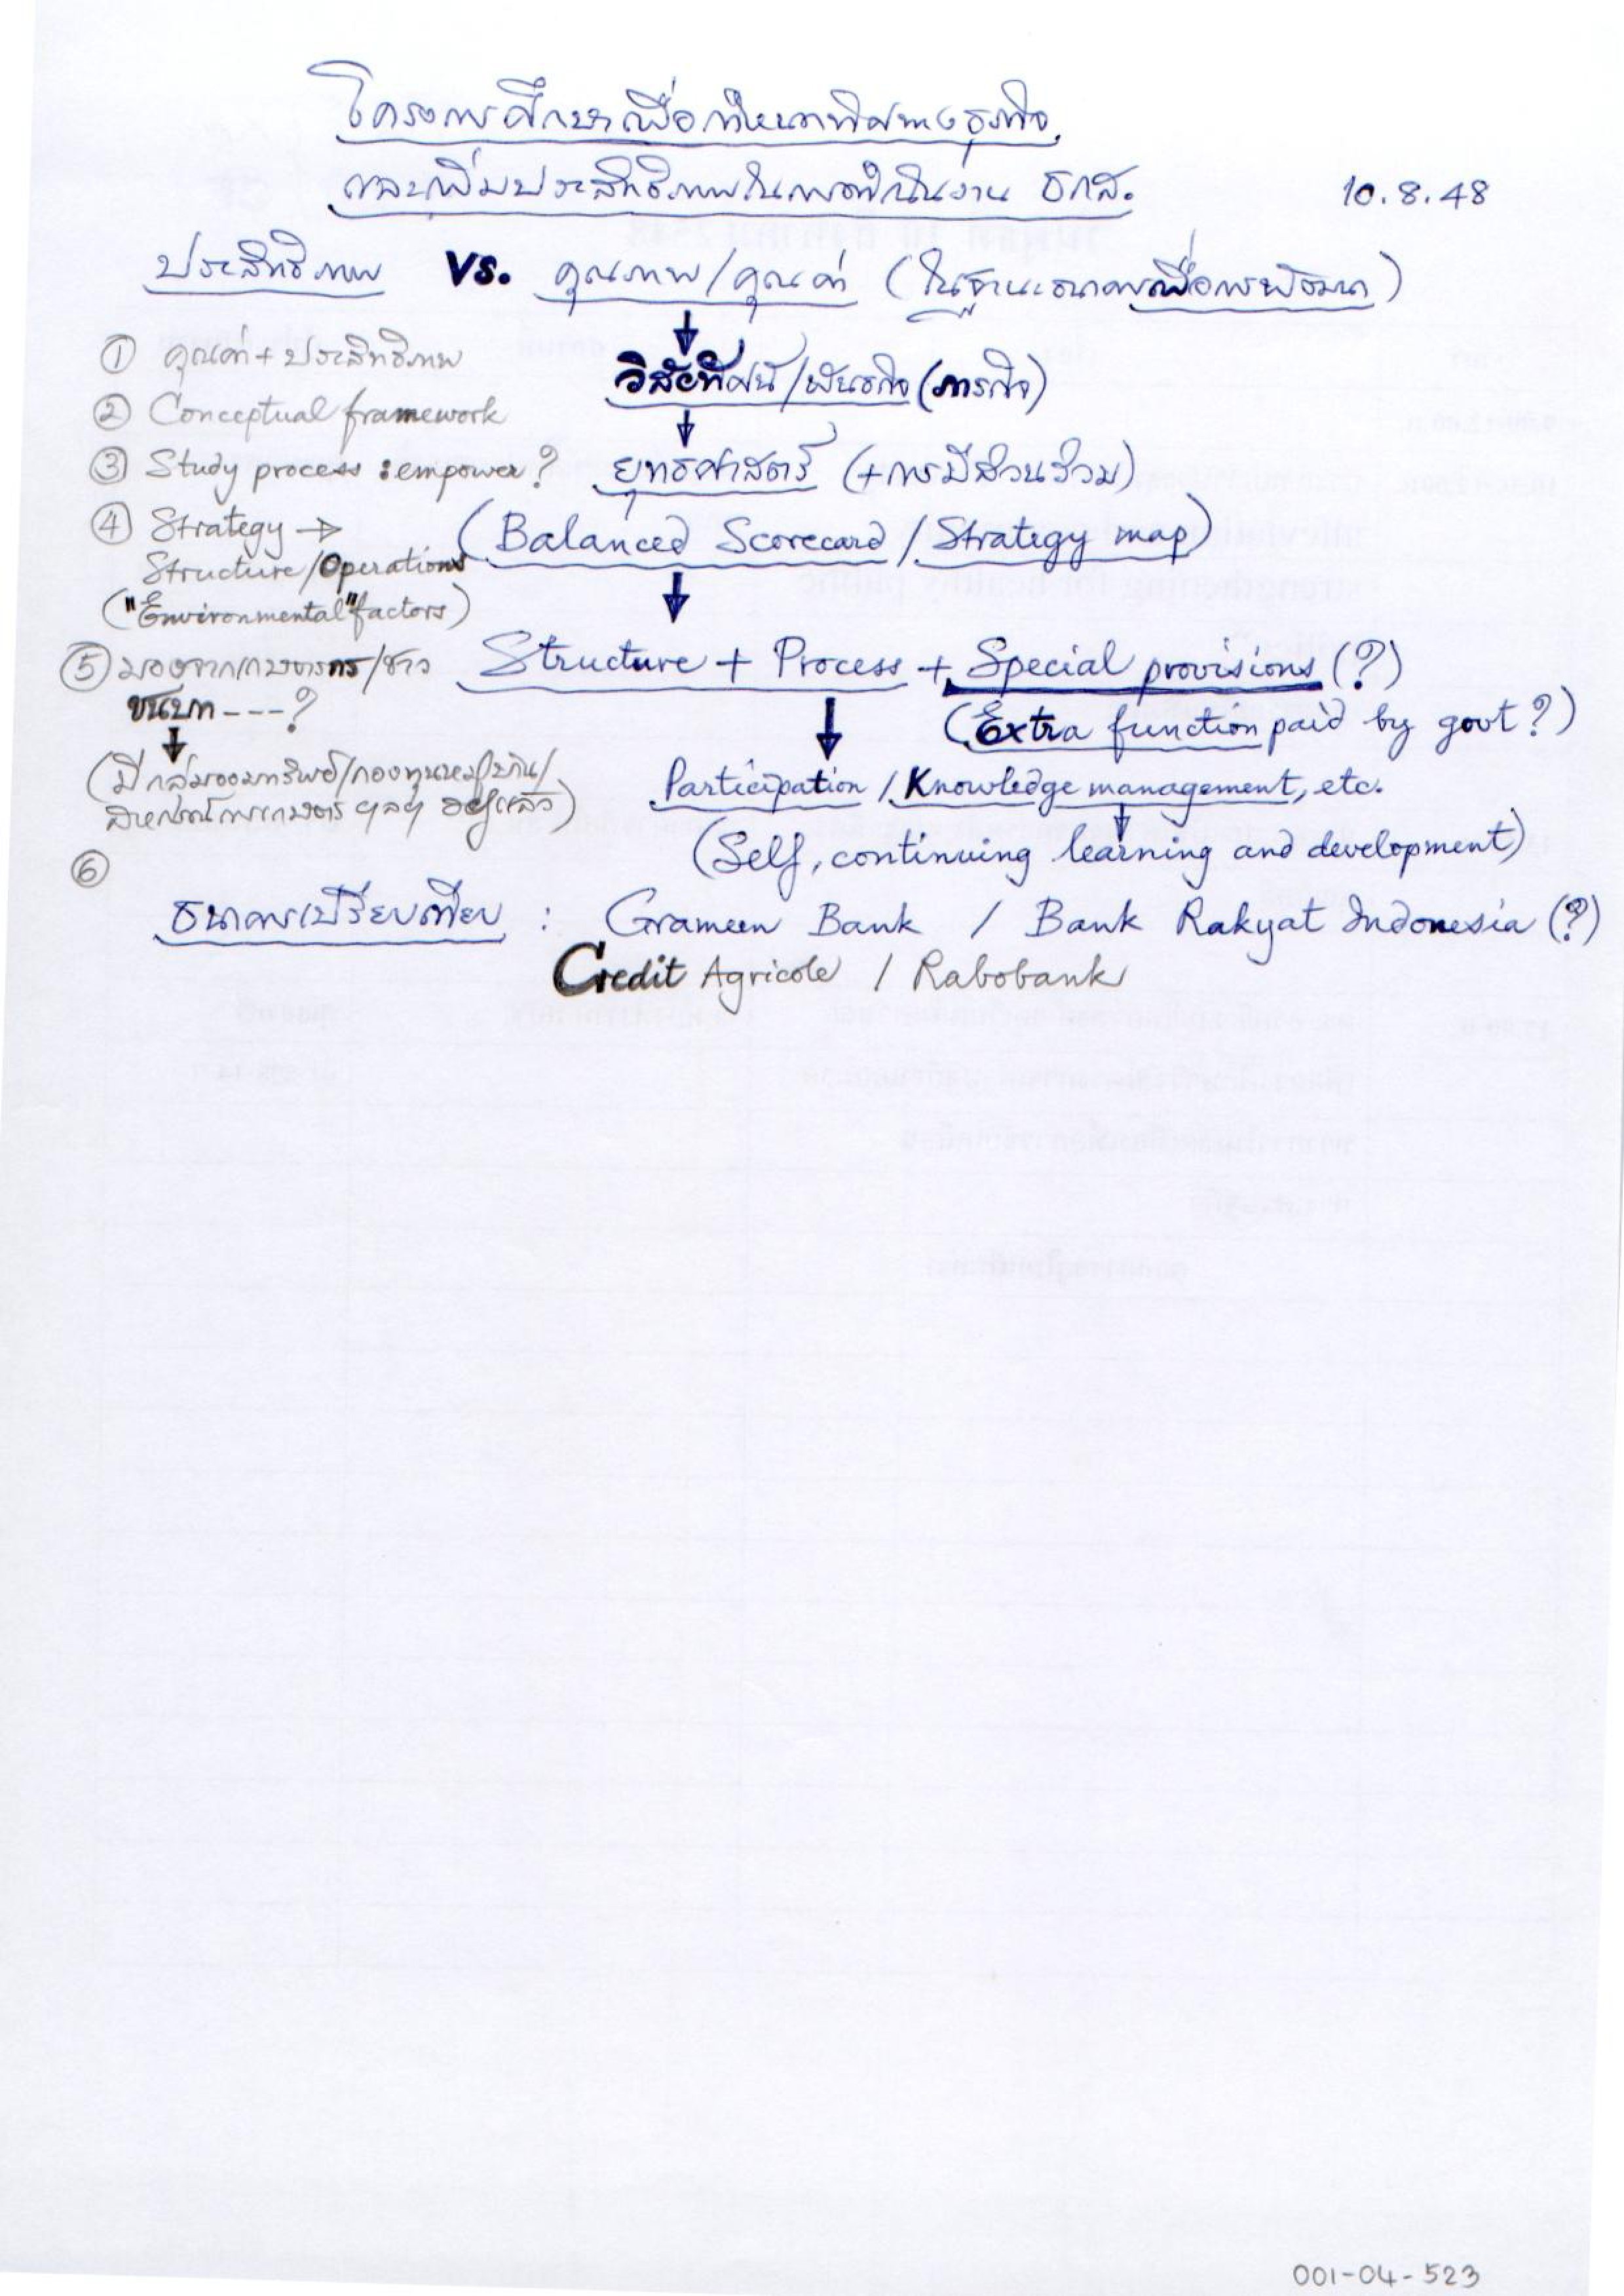 โครงการศึกษาเพื่อกำหนดทิศทางธุรกิจ
และเพิ่มประสิทธิภาพในการดำเนินงาน ธกส. 10.8.48
ประสิทธิภาพ VS. คุณภาพ/คุณค่า (ในฐานะธนาคารเพื่อการพัฒนา)
วิสัยทัศน์/พันธกิจ (ภารกิจ)
ยุทธศาสตร์ (+การมีส่วนร่วม)
(Balanced Scorecard / Strategy map)
Structure + Process + Special provisions (?)
(Extra function paid by govt?)
Participation / Knowledge management, etc.
(Self, continuing learning and development)
① คุณค่า + ประสิทธิภาพ
② Conceptual framework
③ Study process : empower?
④ Strategy →
Structure/Operations
("Environmental" factors)
⑤ มองจากเกษตรกร/ชาว
ชนบท ---?
(มีกลุ่มออมทรัพย์/กองทุนหมู่บ้าน/
สหกรณ์การเกษตร ฯลฯ อยู่แล้ว)
⑥
ธนาคารเปรียบเทียบ : Grameen Bank / Bank Rakyat Indonesia (?)
Credit Agricole / Rabobank
001-04-523